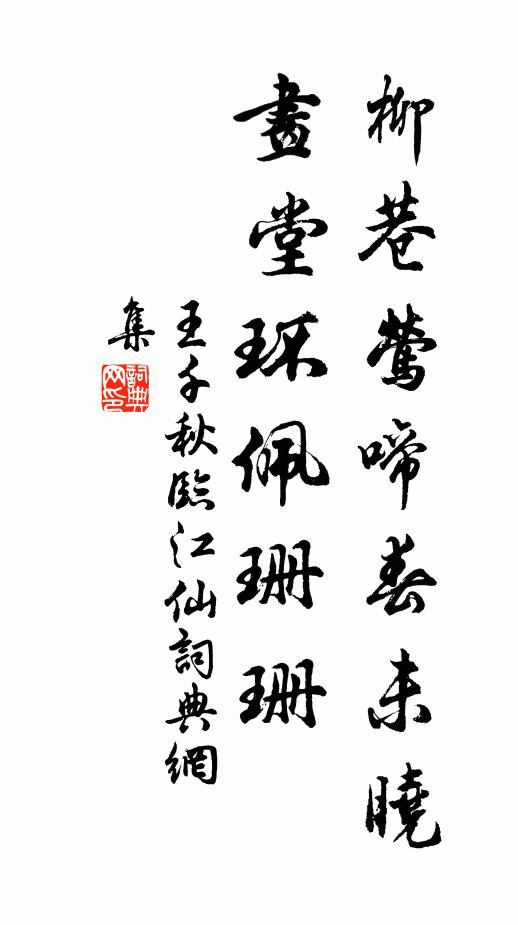 柳巷鶯啼春未曉
畫堂环佩珊珊
王千秋臨江仙詞典網
集
詞典
网印